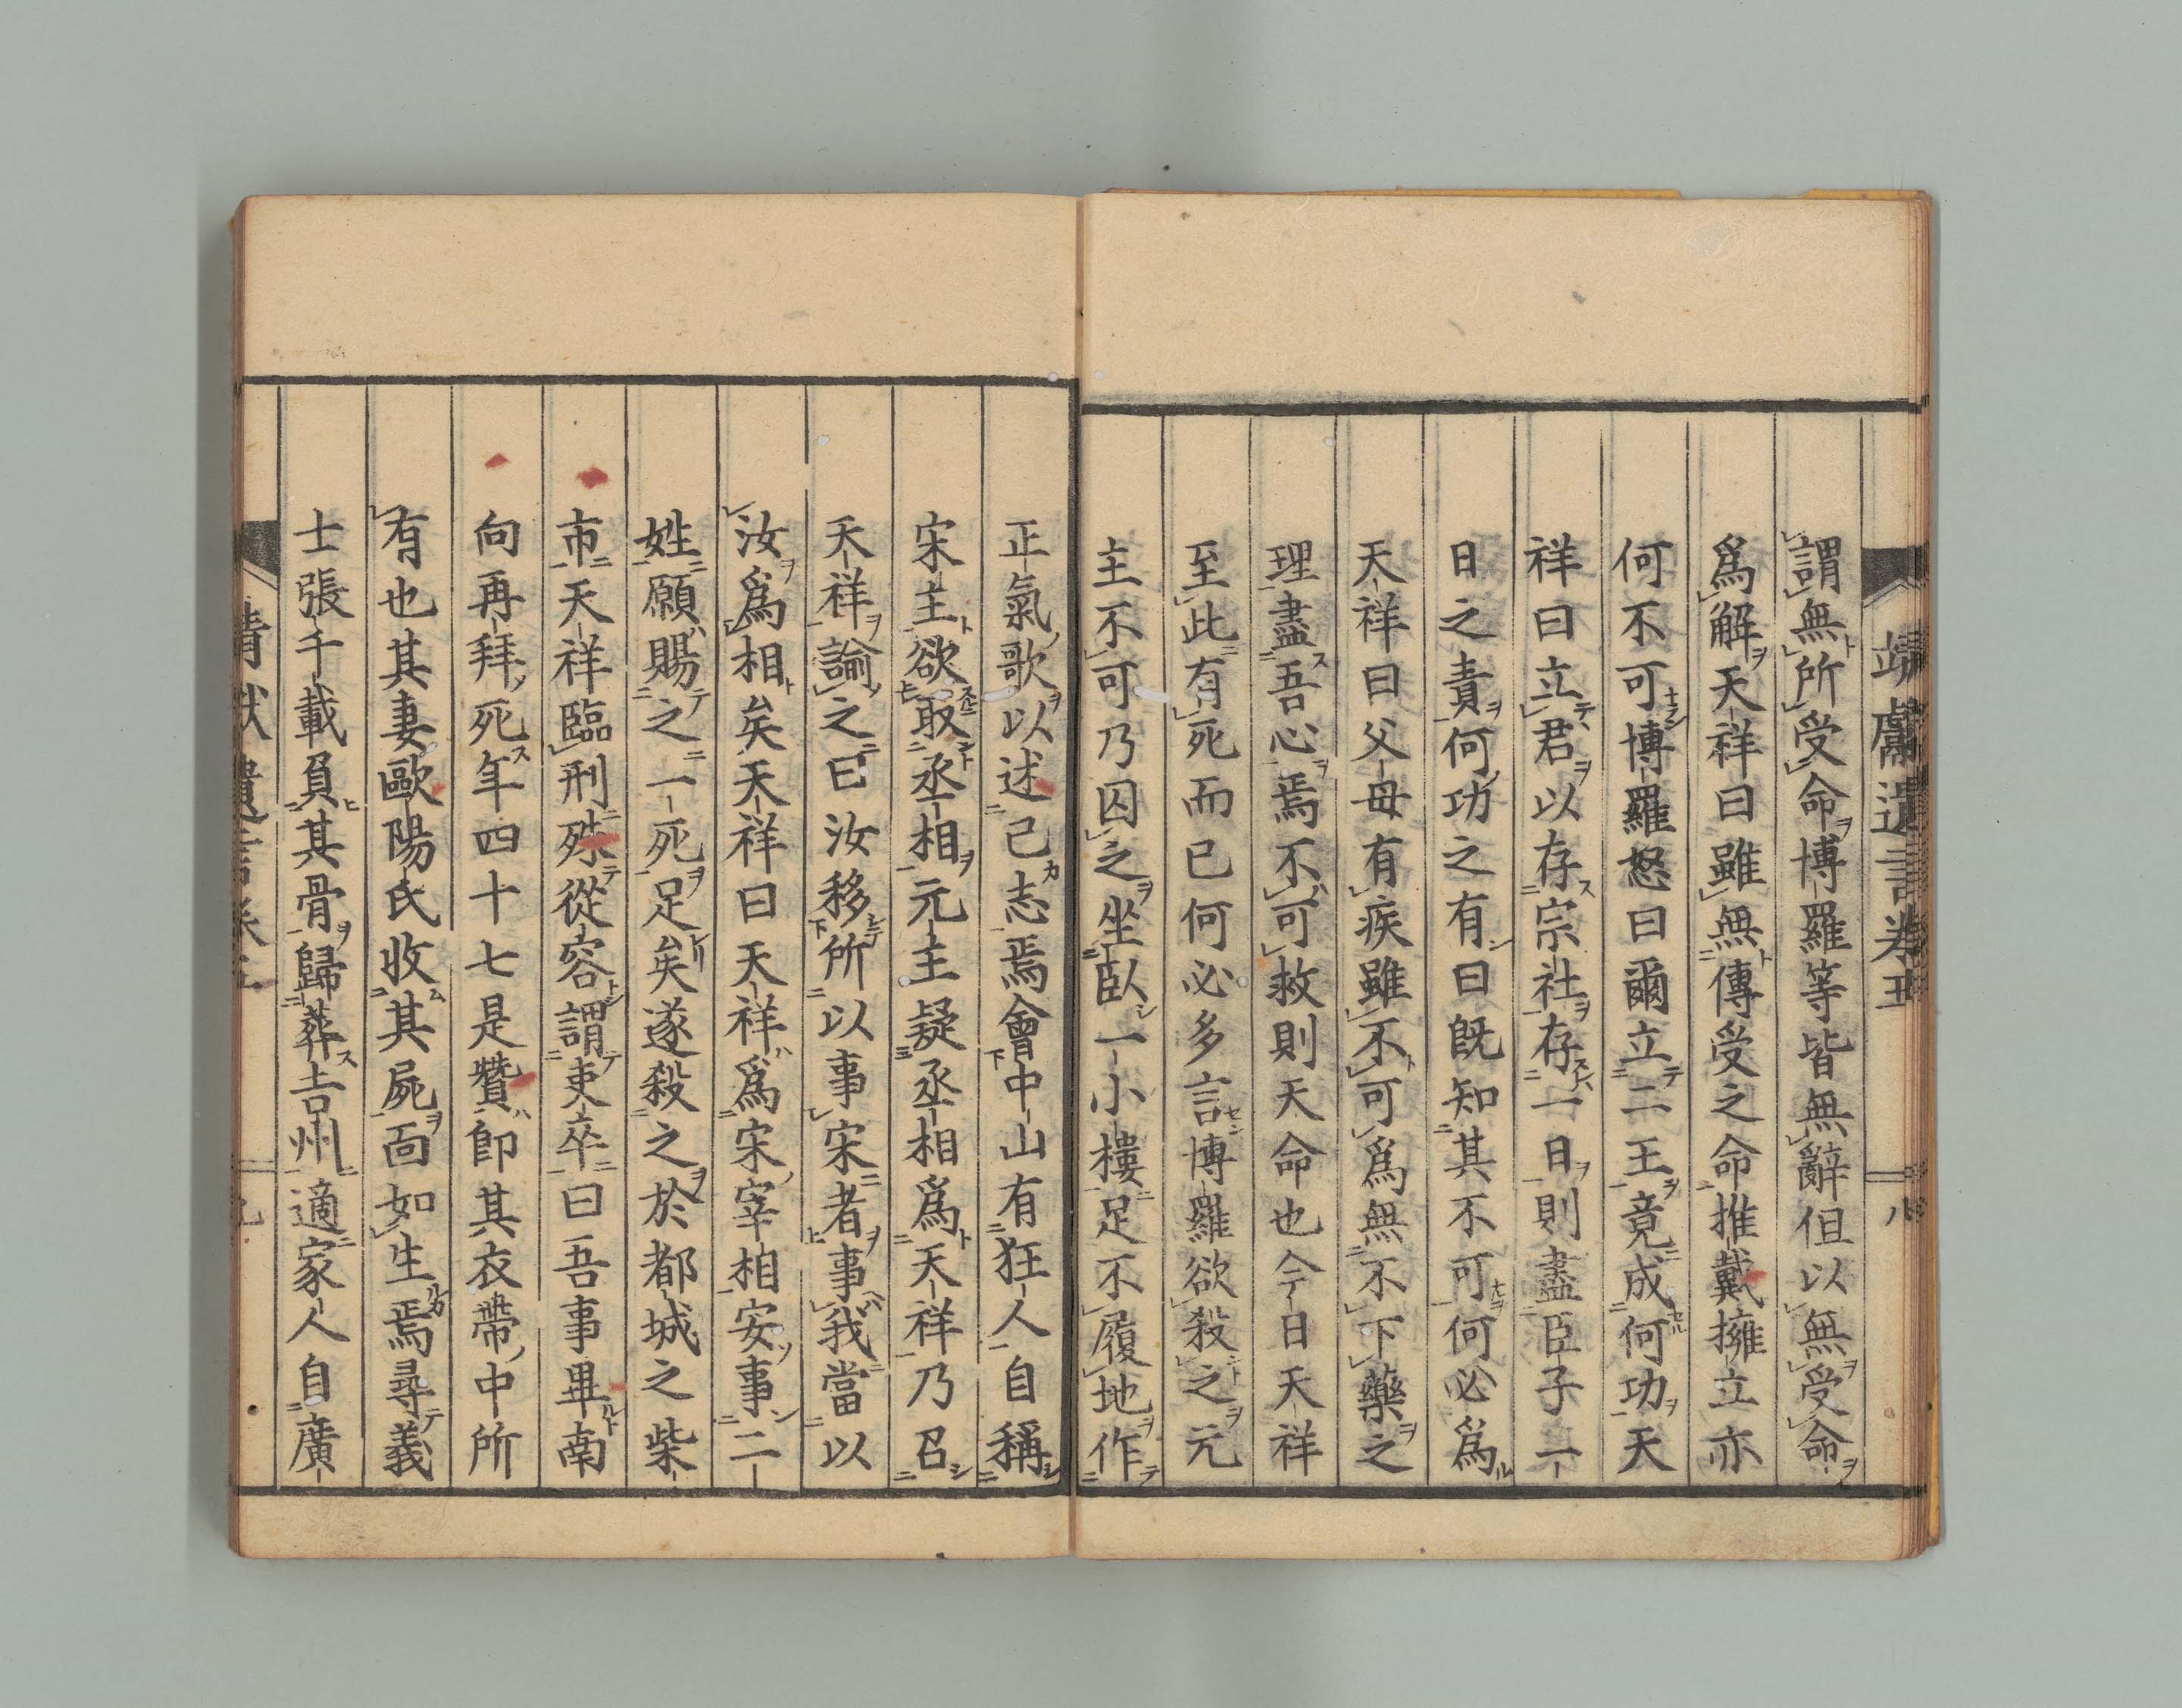 靖獻遺言卷五
八
謂無所受命博羅等皆無辭但以無受命
爲解天祥曰雖無傳受之命推戴擁立亦
何不可博羅怒曰爾立二王竟成何功天
祥曰立君以存宗社存一日則盡臣子一
日之責何功之有曰既知其不可何必爲
天祥曰父母有疾雖不可爲無不下藥之
理盡吾心焉不可救則天命也今日天祥
至此有死而已何必多言博羅欲殺之元
主不可乃囚之坐臥一小樓足不履地作
正氣歌以述己志焉會中山有狂人自稱
宋主欲取丞相元主疑丞相爲天祥乃召
天祥諭之曰汝移所以事宋者事我當以
汝爲相矣天祥曰天祥爲宋宰相安事二
姓願賜之一死足矣遂殺之於都城之柴
市天祥臨刑殊從容謂吏卒曰吾事畢南
向再拜死年四十七是贊卽其衣帶中所
有也其妻歐陽氏收其屍面如生焉尋義
士張千載負其骨歸葬吉州適家人自廣
靖獻遺言卷五